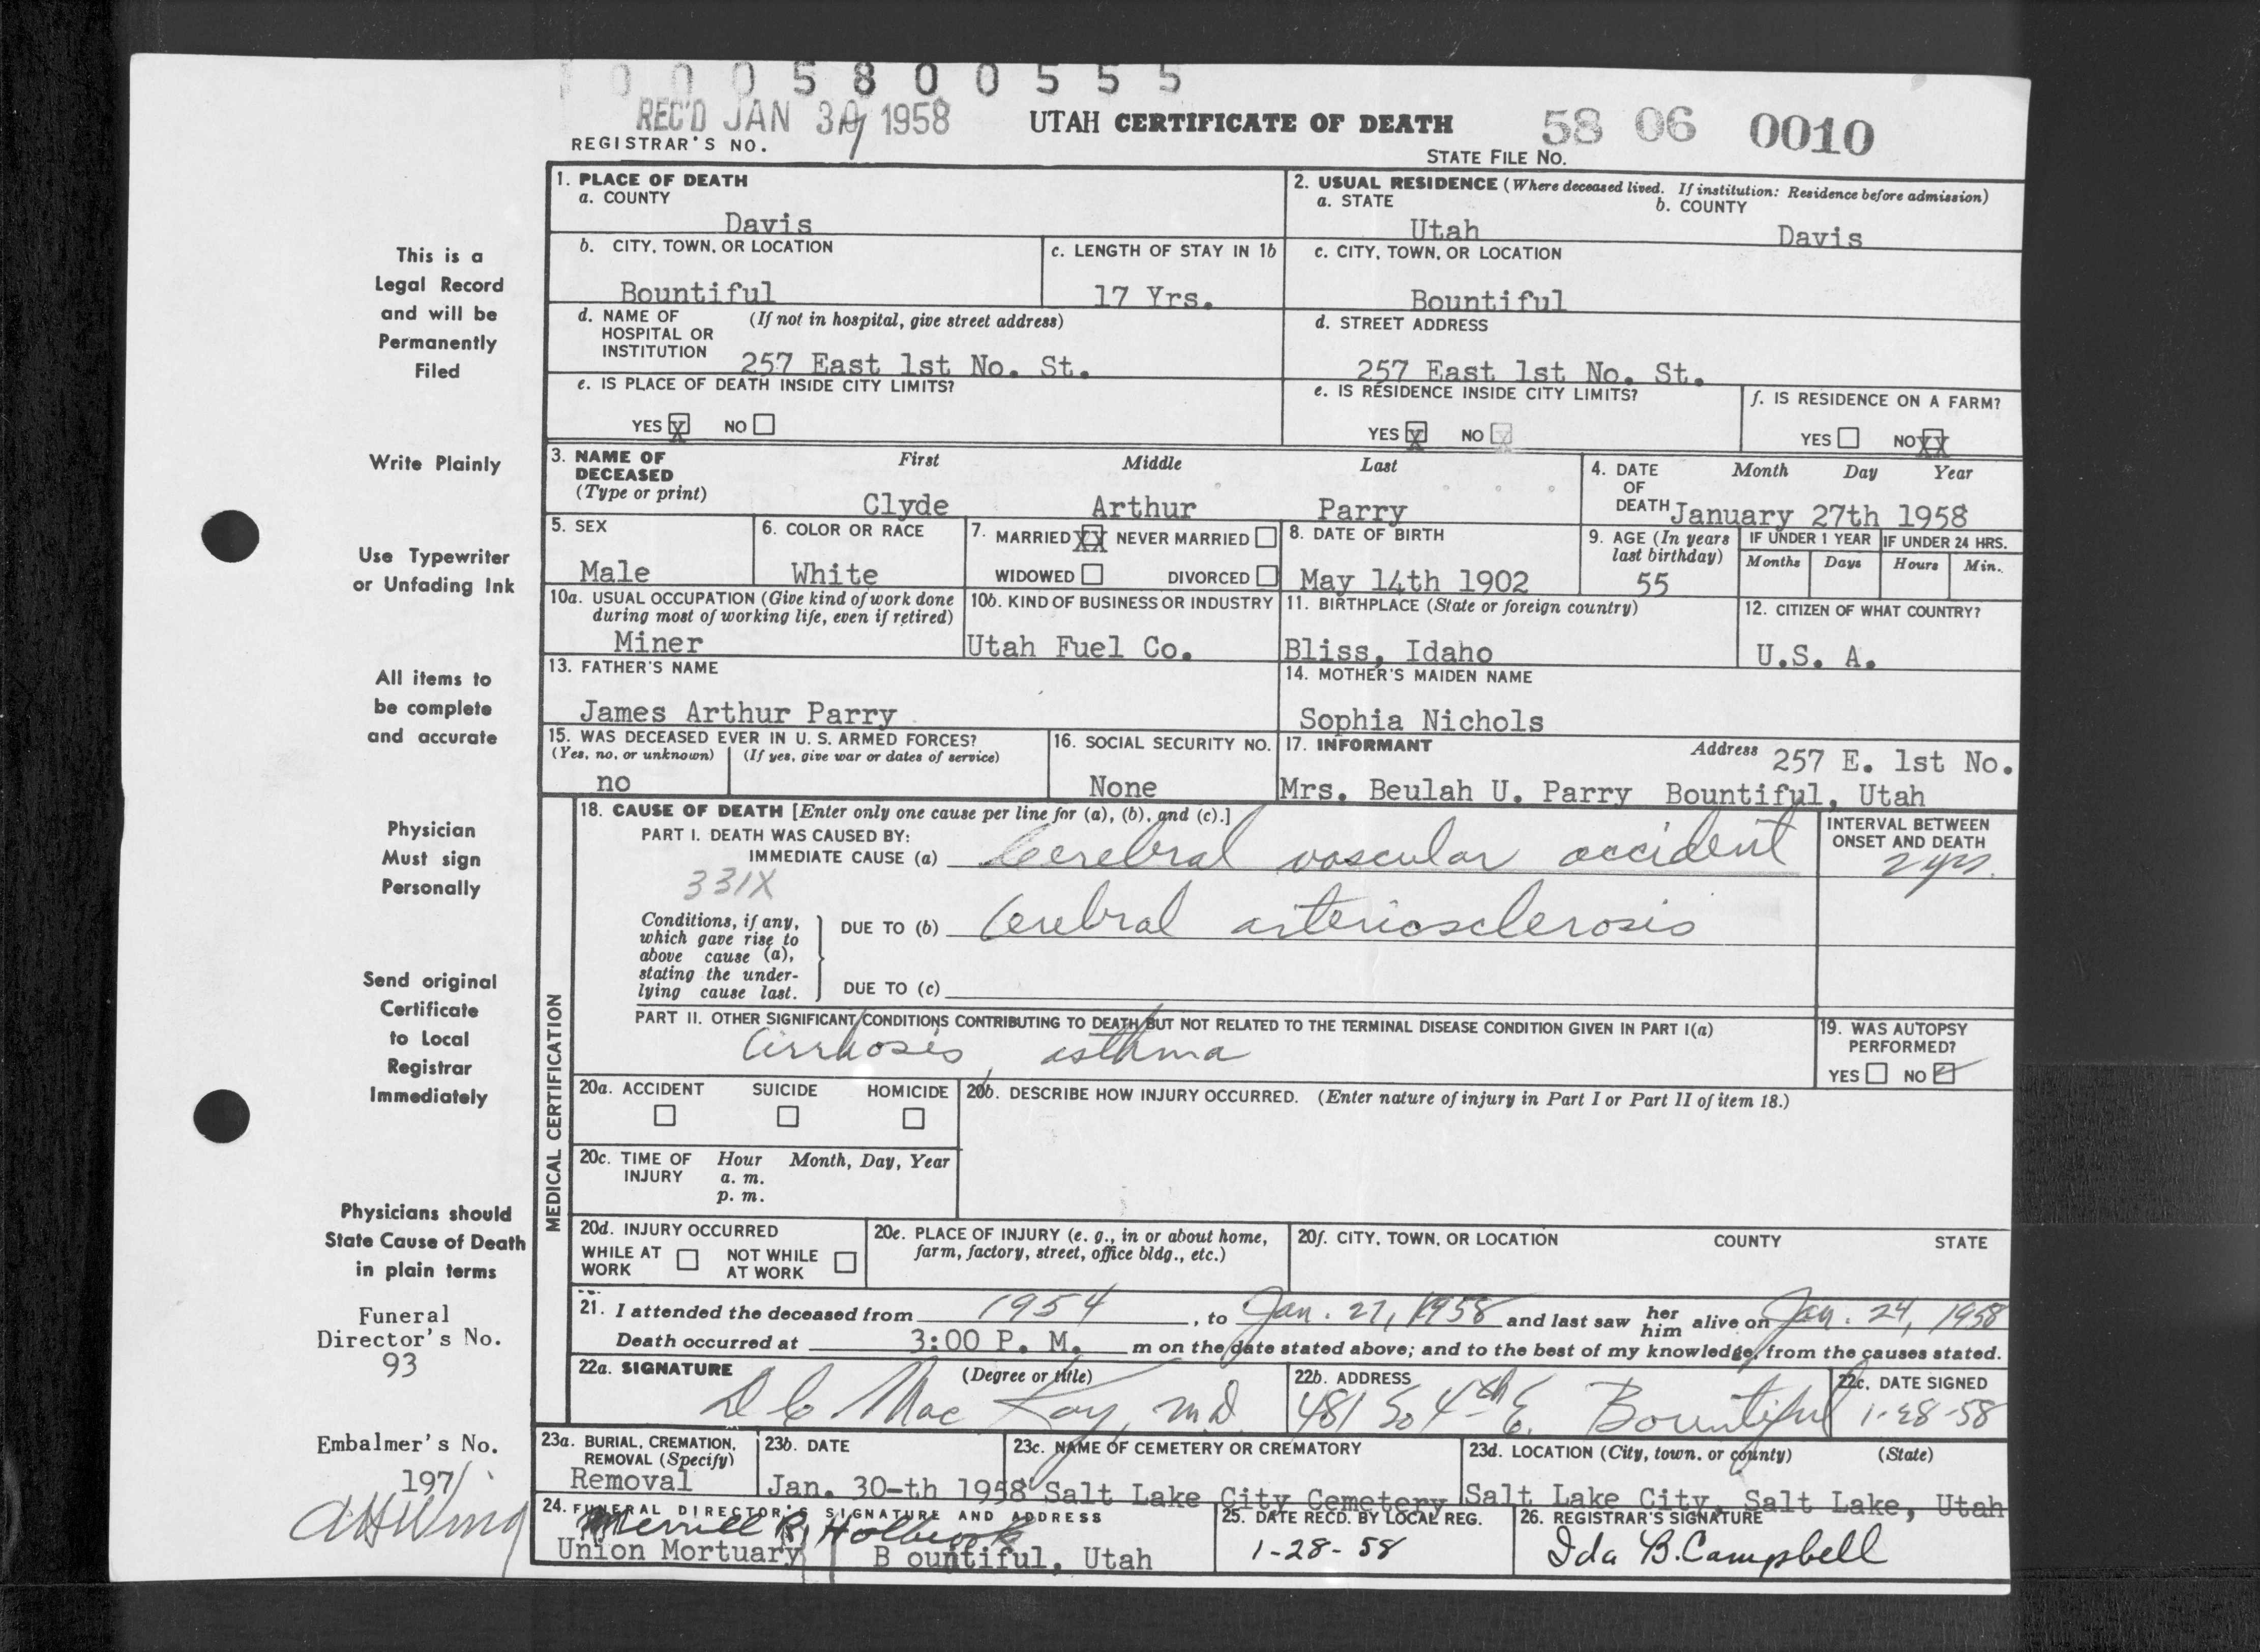 0 0 0 5 8 0 0 5 5 5
REC'D JAN 30 1958
UTAH CERTIFICATE OF DEATH
58 06 0010
REGISTRAR'S NO.
STATE FILE NO.
This is a
Legal Record
and will be
Permanently
Filed
Write Plainly
Use Typewriter
or Unfading Ink
All items to
be complete
and accurate
Physician
Must sign
Personally
Send original
Certificate
to Local
Registrar
Immediately
Physicians should
State Cause of Death
in plain terms
Funeral
Director's No.
93
Embalmer's No.
197
1. PLACE OF DEATH
a. COUNTY
Davis
2. USUAL RESIDENCE (Where deceased lived. If institution: Residence before admission)
a. STATE
b. COUNTY
Utah
Davis
b. CITY, TOWN, OR LOCATION
c. LENGTH OF STAY IN 1b
c. CITY, TOWN, OR LOCATION
Bountiful
17 Yrs.
Bountiful
d. NAME OF (If not in hospital, give street address)
HOSPITAL OR
INSTITUTION
257 East 1st No. St.
d. STREET ADDRESS
257 East 1st No. St.
e. IS PLACE OF DEATH INSIDE CITY LIMITS?
YES X NO
e. IS RESIDENCE INSIDE CITY LIMITS?
YES X NO X
f. IS RESIDENCE ON A FARM?
YES NO XX
3. NAME OF
DECEASED
(Type or print)
First Middle Last
Clyde Arthur Parry
4. DATE Month Day Year
OF
DEATH January 27th 1958
5. SEX
Male
6. COLOR OR RACE
White
7. MARRIED XX NEVER MARRIED
WIDOWED DIVORCED
8. DATE OF BIRTH
May 14th 1902
9. AGE (In years
last birthday)
55
IF UNDER 1 YEAR
Months Days
IF UNDER 24 HRS.
Hours Min.
10a. USUAL OCCUPATION (Give kind of work done
during most of working life, even if retired)
Miner
10b. KIND OF BUSINESS OR INDUSTRY
Utah Fuel Co.
11. BIRTHPLACE (State or foreign country)
Bliss, Idaho
12. CITIZEN OF WHAT COUNTRY?
U.S. A.
13. FATHER'S NAME
James Arthur Parry
14. MOTHER'S MAIDEN NAME
Sophia Nichols
15. WAS DECEASED EVER IN U. S. ARMED FORCES?
(Yes, no, or unknown) (If yes, give war or dates of service)
no
16. SOCIAL SECURITY NO.
None
17. INFORMANT
Address 257 E. 1st No.
Mrs. Beulah U. Parry Bountiful, Utah
MEDICAL CERTIFICATION
18. CAUSE OF DEATH [Enter only one cause per line for (a), (b), and (c).]
PART I. DEATH WAS CAUSED BY:
IMMEDIATE CAUSE (a) Cerebral vascular accident
INTERVAL BETWEEN
ONSET AND DEATH
2 yrs.
331X
Conditions, if any,
which gave rise to
above cause (a),
stating the under-
lying cause last.
DUE TO (b) Cerebral arteriosclerosis
DUE TO (c)
PART II. OTHER SIGNIFICANT CONDITIONS CONTRIBUTING TO DEATH BUT NOT RELATED TO THE TERMINAL DISEASE CONDITION GIVEN IN PART I(a)
Cirrhosis, asthma
19. WAS AUTOPSY
PERFORMED?
YES NO
20a. ACCIDENT SUICIDE HOMICIDE
20b. DESCRIBE HOW INJURY OCCURRED. (Enter nature of injury in Part I or Part II of item 18.)
20c. TIME OF Hour Month, Day, Year
INJURY a. m.
p. m.
20d. INJURY OCCURRED
WHILE AT NOT WHILE
WORK AT WORK
20e. PLACE OF INJURY (e. g., in or about home,
farm, factory, street, office bldg., etc.)
20f. CITY, TOWN, OR LOCATION COUNTY STATE
21. I attended the deceased from 1954, to Jan. 27, 1958 and last saw her him alive on Jan. 24, 1958
Death occurred at 3:00 P. M. m on the date stated above; and to the best of my knowledge, from the causes stated.
22a. SIGNATURE (Degree or title)
D C MacKay, M.D.
22b. ADDRESS
481 So 4th E. Bountiful
22c. DATE SIGNED
1-28-58
23a. BURIAL, CREMATION,
REMOVAL (Specify)
Removal
23b. DATE
Jan. 30-th 1958
23c. NAME OF CEMETERY OR CREMATORY
Salt Lake City Cemetery
23d. LOCATION (City, town, or county) (State)
Salt Lake City, Salt Lake, Utah
24. FUNERAL DIRECTOR'S SIGNATURE AND ADDRESS
Merrill R. Holbrook
Union Mortuary B ountiful, Utah
25. DATE RECD. BY LOCAL REG.
1-28-58
26. REGISTRAR'S SIGNATURE
Ida B. Campbell